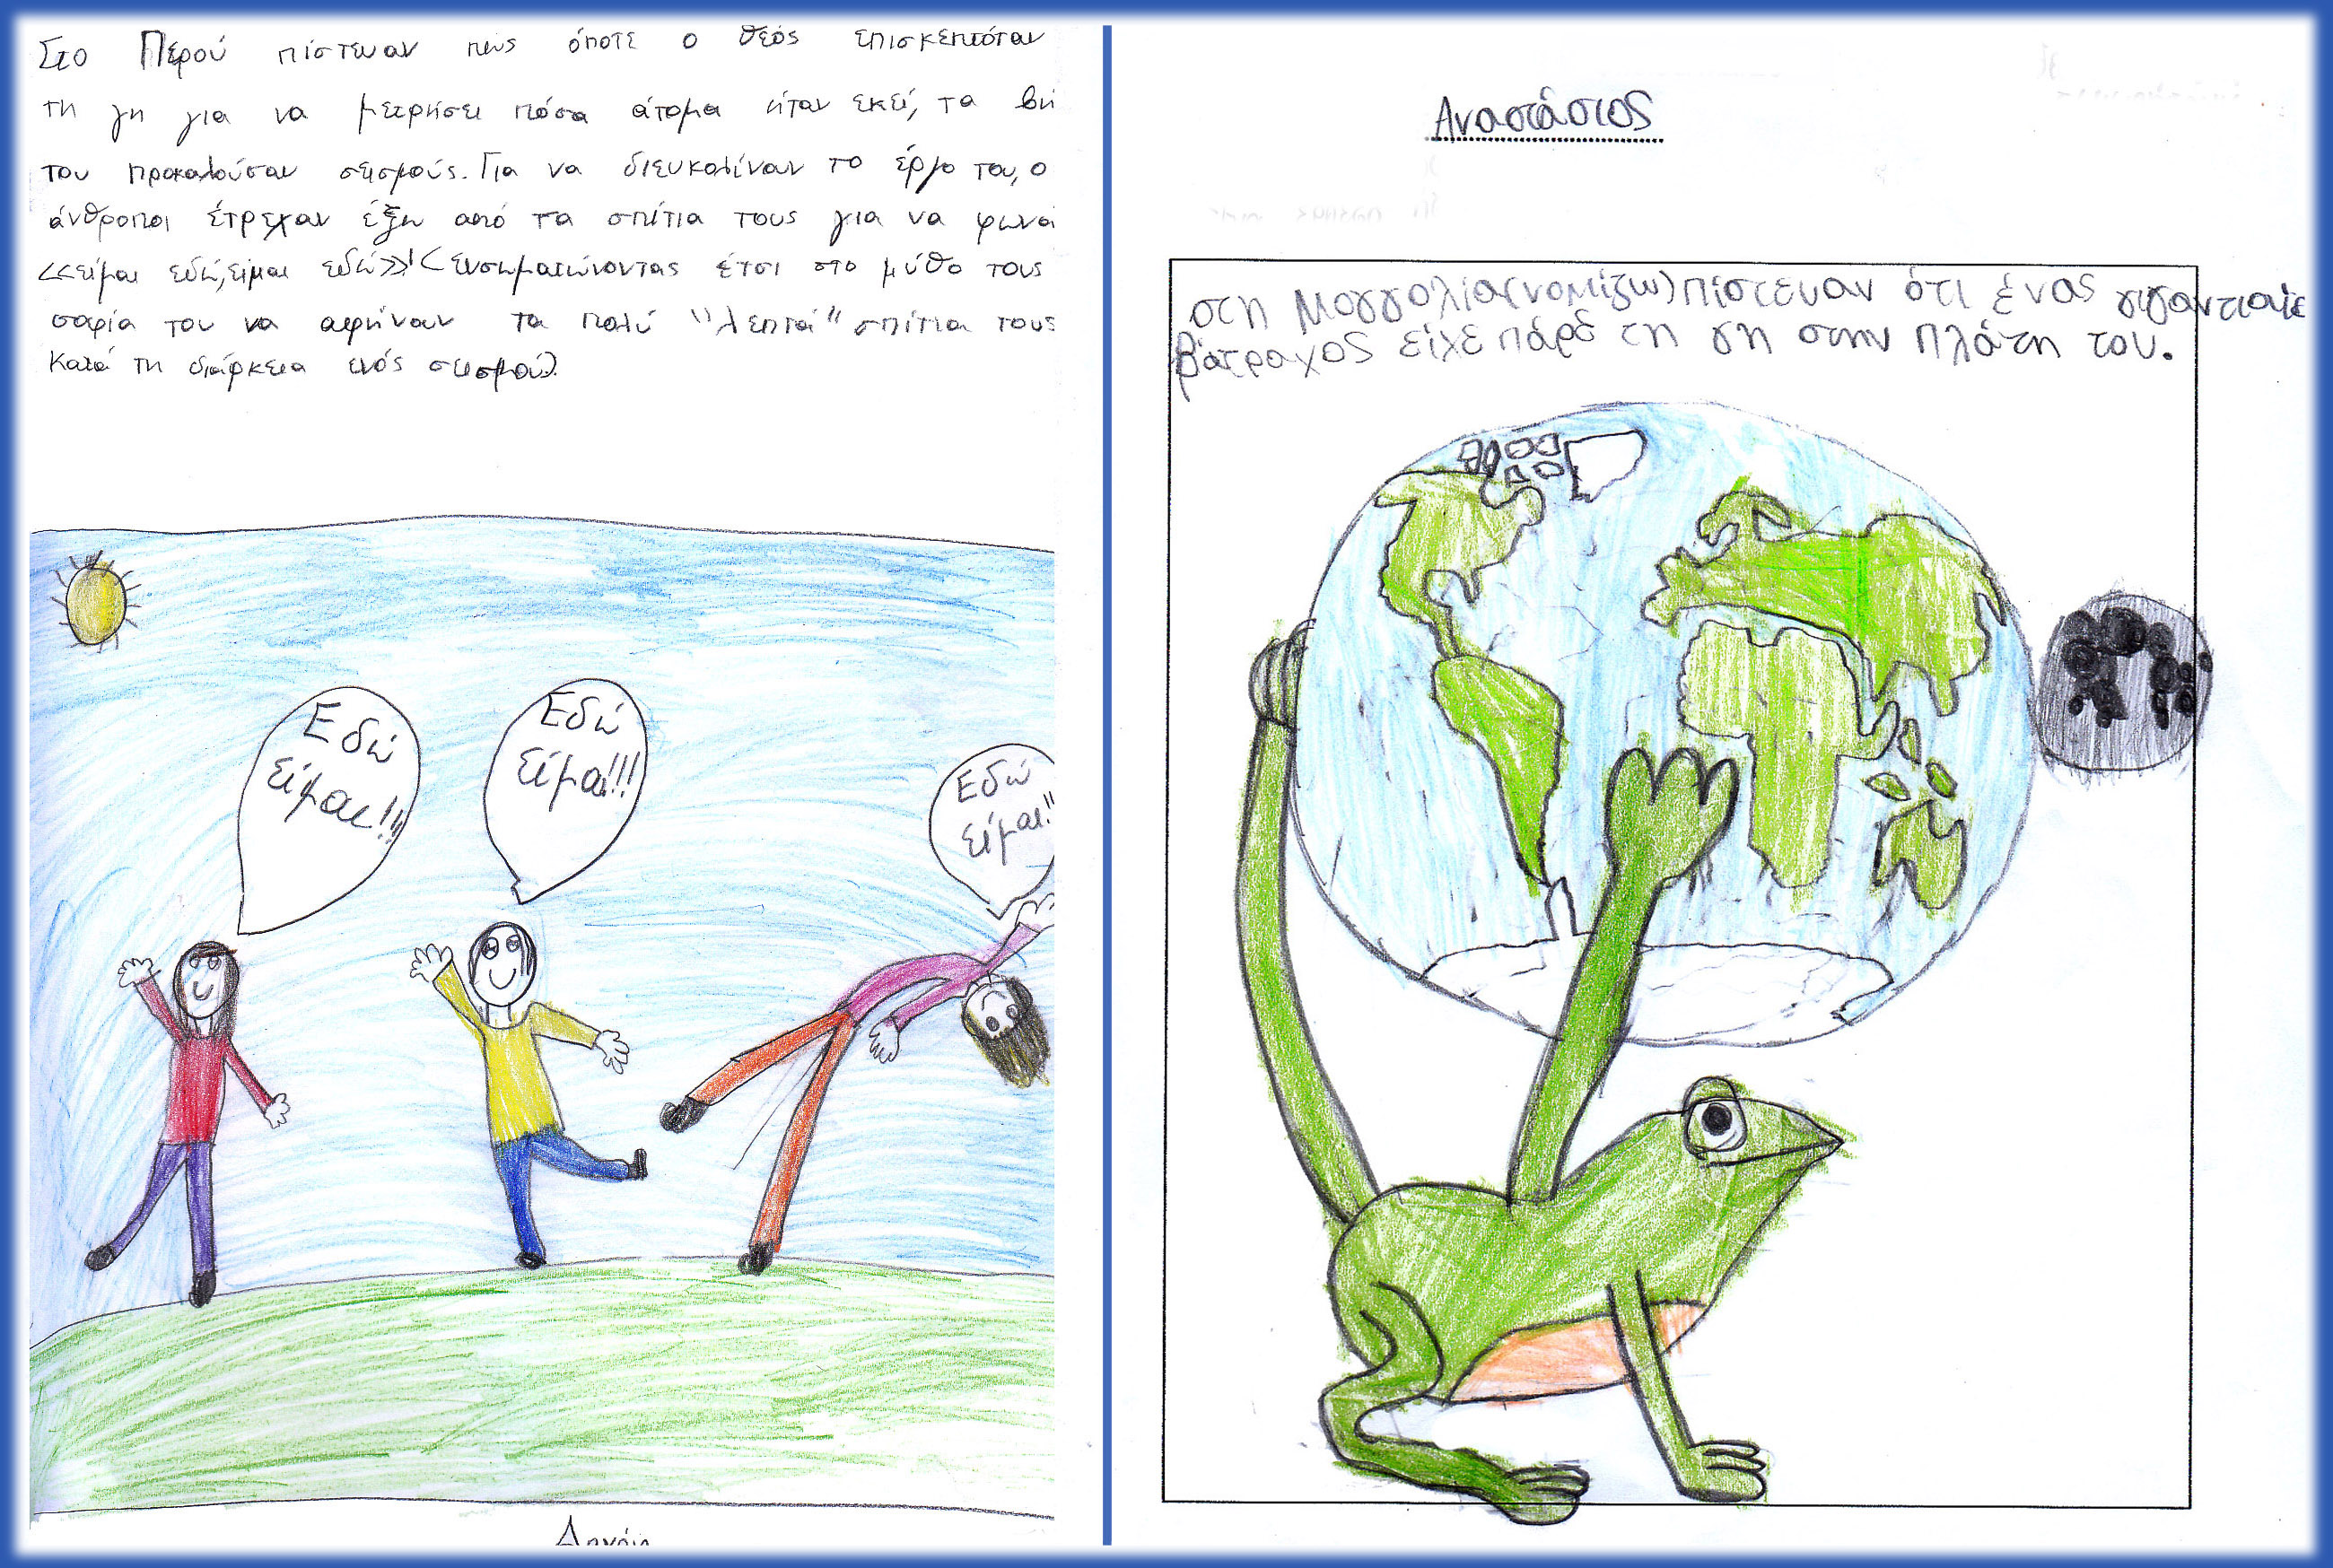 Στο Περού πίστευαν πως όποτε ο θεός επισκεπτόταν
τη γη για να μετρήσει πόσα άτομα ήταν εκεί, τα βή
του προκαλούσαν σεισμούς. Για να διευκολύνουν το έργο του, ο
άνθροποι έτρεχαν έξω από τα σπίτια τους για να φωνά
<<είμαι εδώ, είμαι εδώ>>! (ενσωματώνοντας έτσι στο μύθο τους
σοφία του να αφήνουν τα πολύ "λεπτά" σπίτια τους
Κατά τη διάρκεια ενός σεισμού).
Εδώ
είμαι!!!
Εδώ
είμαι!!!
Εδώ
είμαι!!
Αναστάσιος
στη Μογγολία(νομίζω) πίστευαν ότι ένας γιγαντιαίε
βάτραχος είχε πάρε τη γη στην πλάτη του.